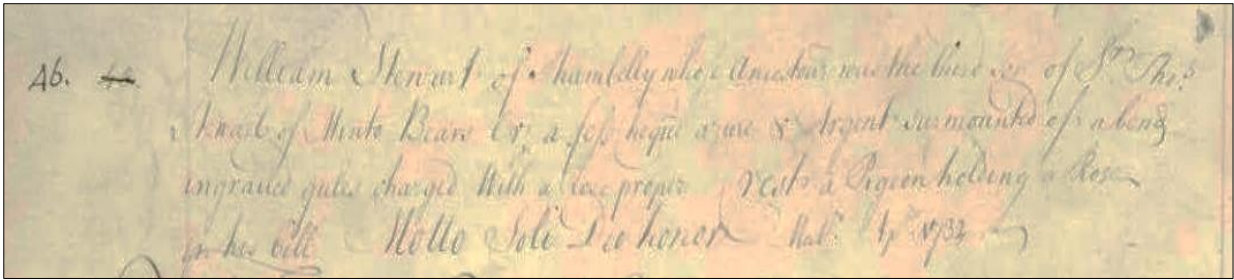 46. William Stewart of Shambelly whose Ancestour was the third son of Sr. Tho:s
Stewart of Minto Bears Or, a fess cheque azure & Argent surmounted of a bend
ingrailed gules charged With a rose proper Crest a Pigeon holding a Rose
in her bill Motto Soli Deo honor Mat: 1732